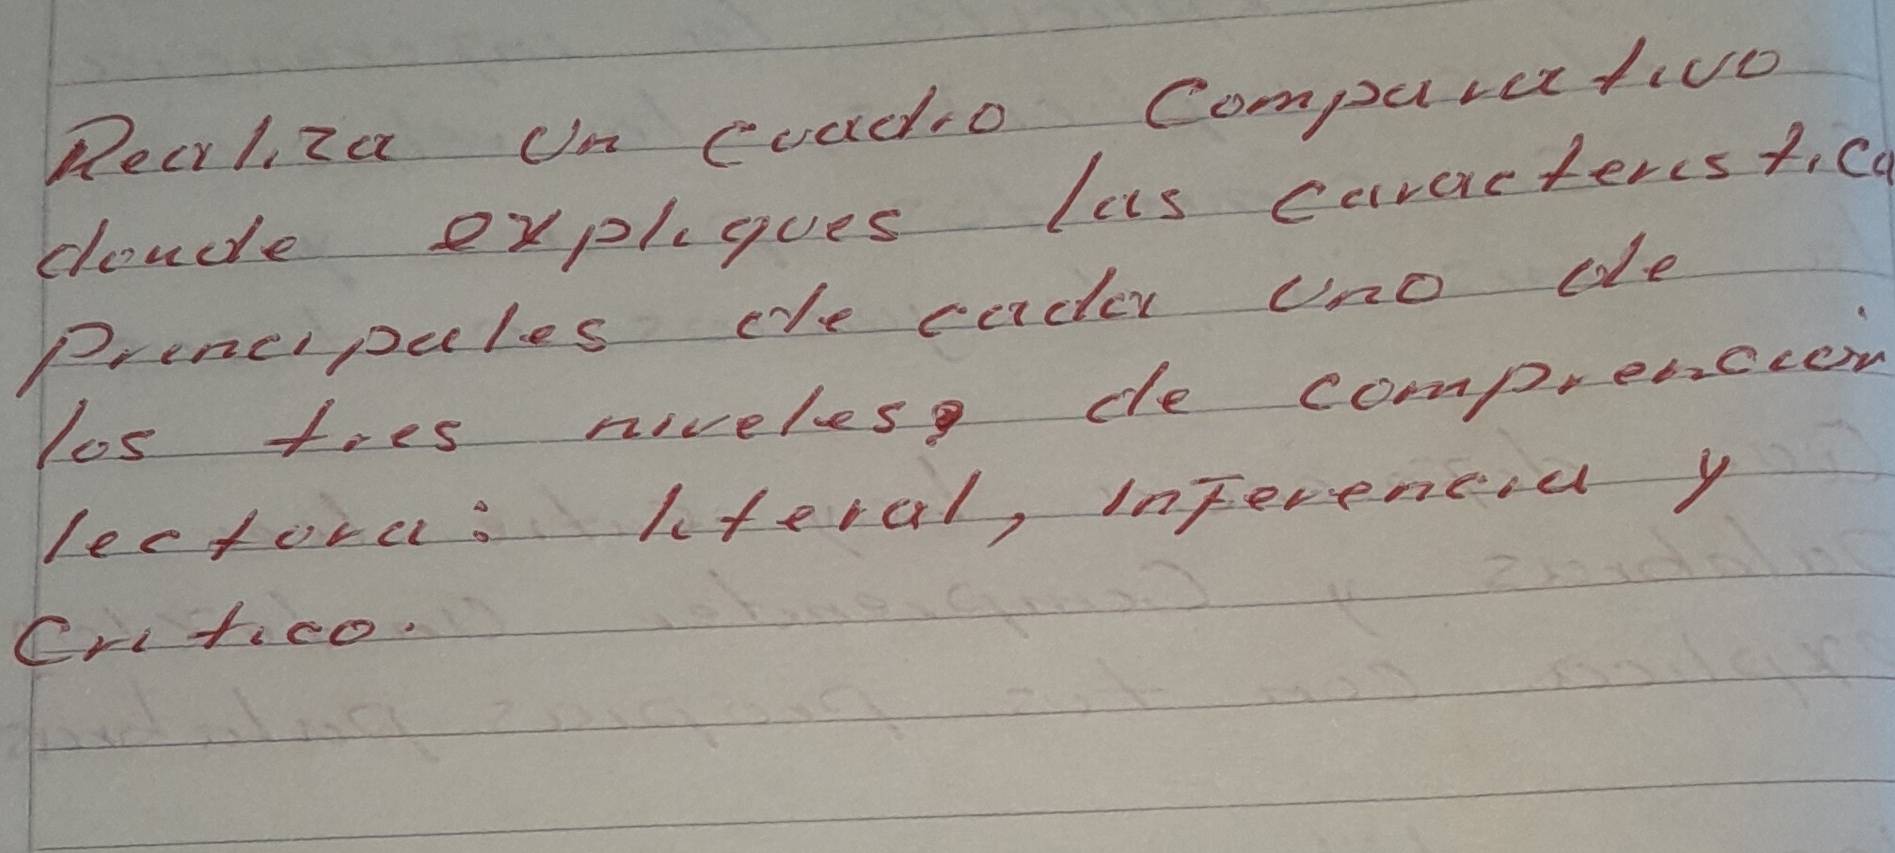 Realiza un cuadro comparativo
donde expliques las caracteristica
principales de cada uno de
los tres niveles, de comprencion
lectora: literal, inferencia y
critico.